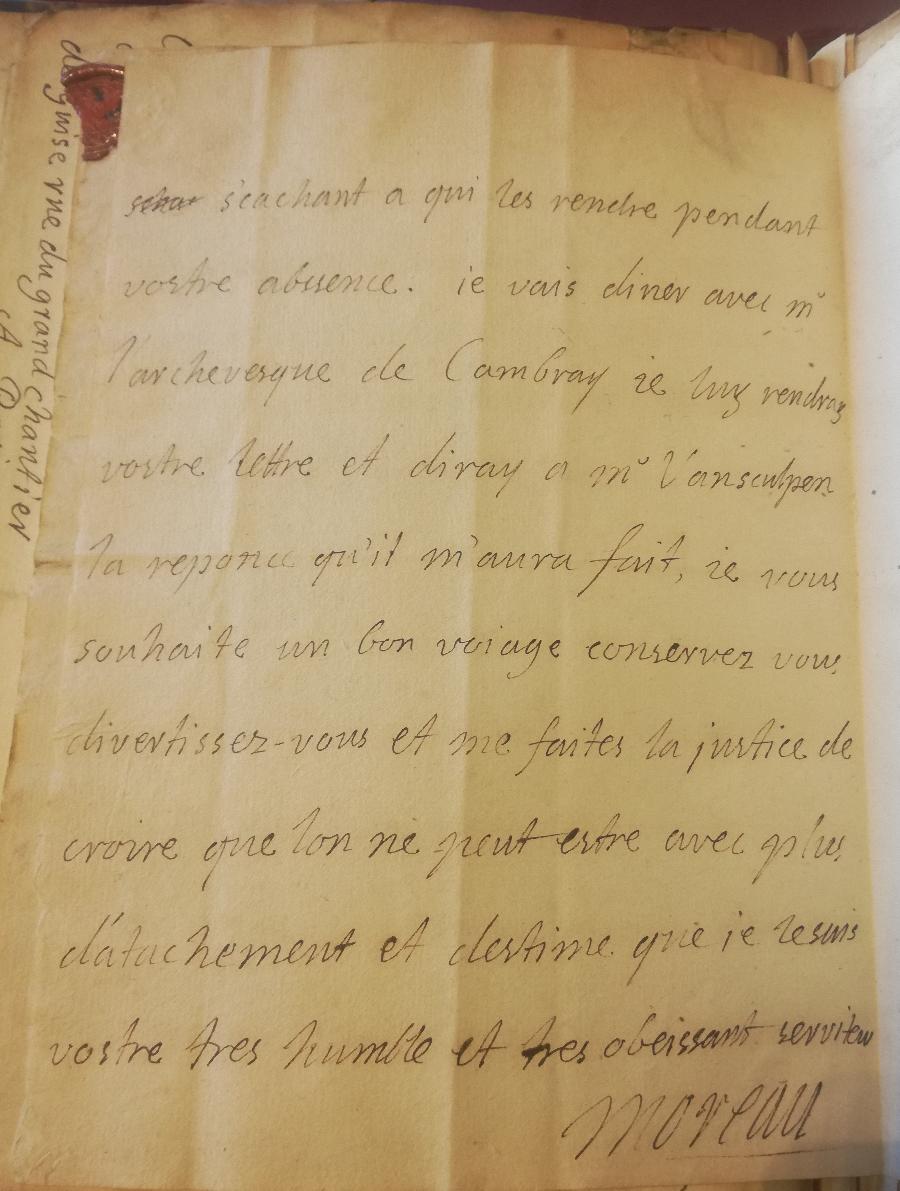 s'cachant a qui les rendre pendant
vostre abssence. ie vais diner avec mr
l'archevesque de Cambray ie luy rendray
vostre lettre et diray a mr Vansculpen
la reponce qu'il m'aura fait, ie vous
souhaite un bon voiage conservez vous
divertissez-vous et me faites la justice de
croire que lon ne peut estre avec plus
d'atachement et destime que je le suis
vostre tres humble et tres obeissant serviteur
Moreau
de guise rue du grand chantier
A